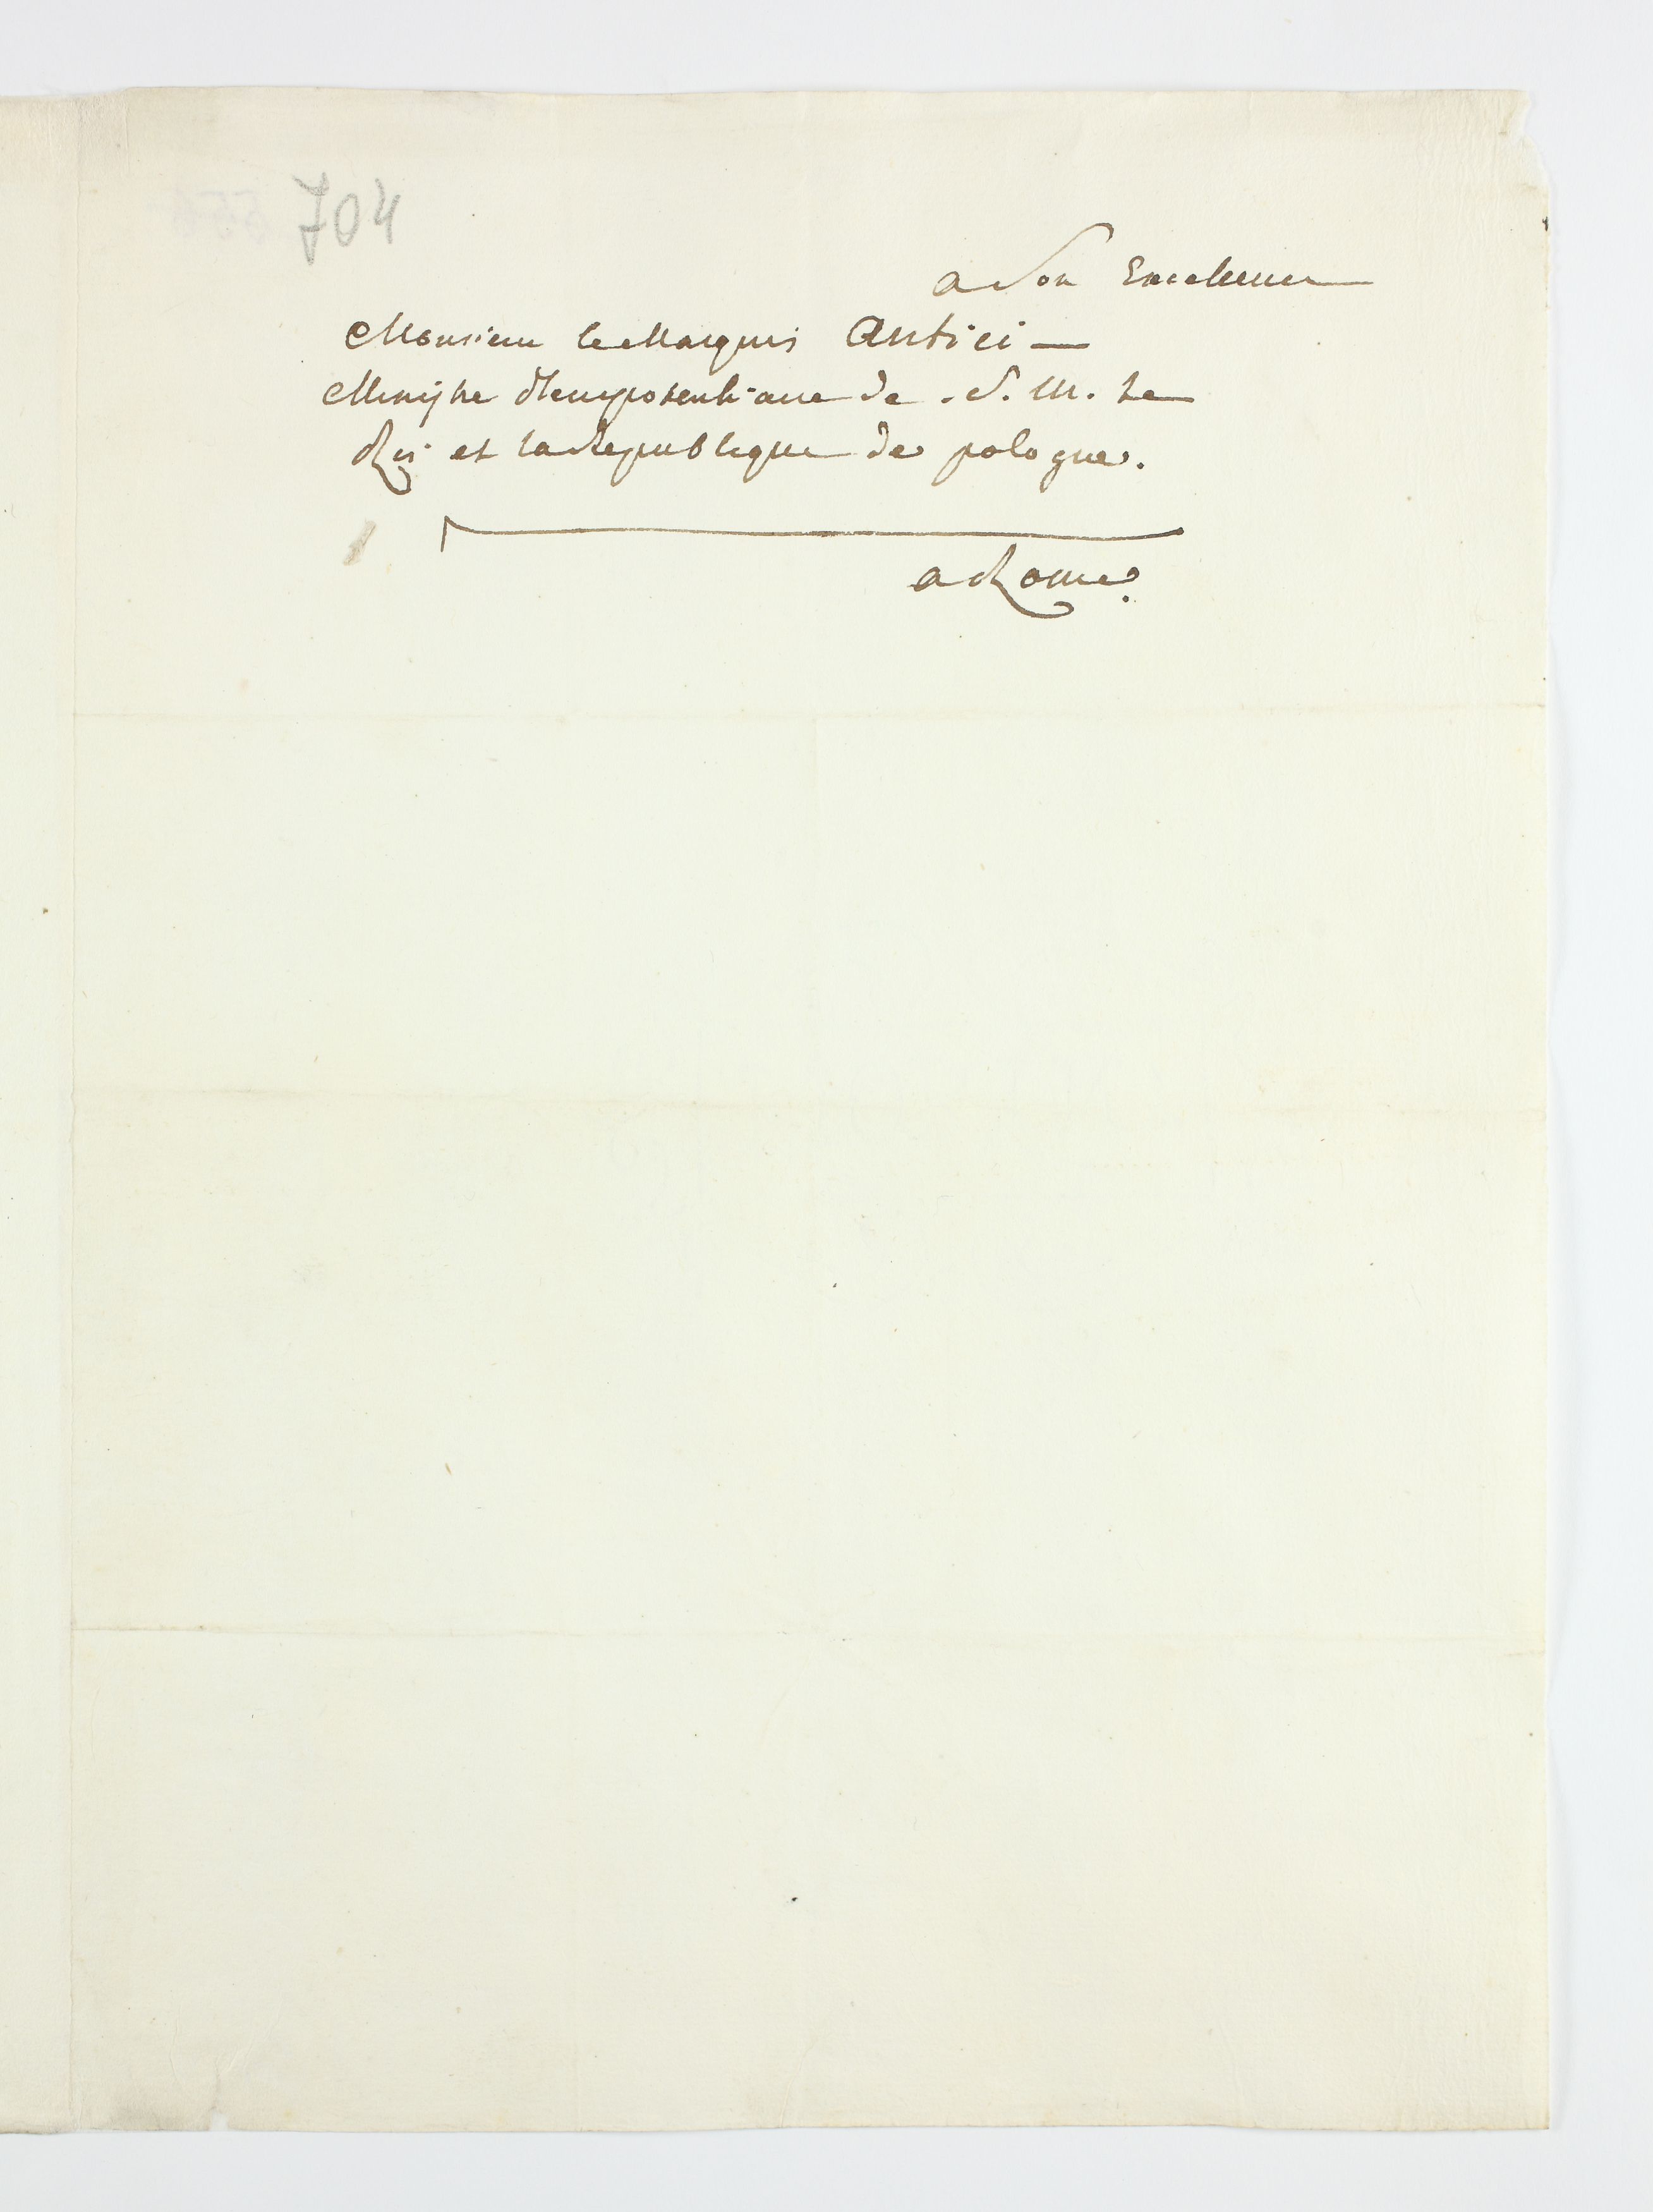 704
a Son Excellence
Monsieur le Marquis Antici
Ministre Plenipotentiaire de S. M. Le
Roi et la Republique de pologne.
a Rome.